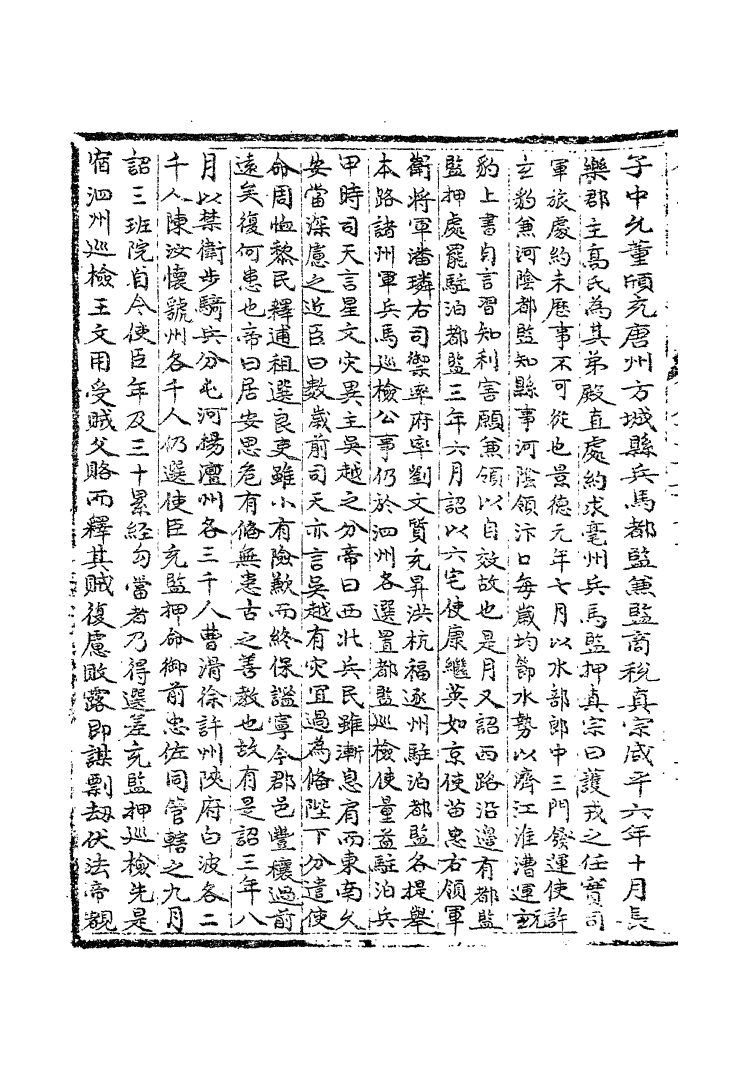 子中允董頎充唐州方城縣兵馬都監兼監商税真宗咸平六年十月長
樂郡主高氏為其弟殿直處約求亳州兵馬監押真宗曰護戎之任實司
軍旅處約未歷事不可從也景德元年七月以水部郎中三門發運使許
玄豹兼河陰都監知縣事河陰領汴口每歲均節水勢以濟江淮漕運玄
豹上書自言習知利害願兼領以自效故也是月又詔西路沿邊有都監
監押處罷駐泊都監三年六月詔以六宅使康繼英如京使苗忠右領軍
衛將軍潘璘右司禦率府率劉文質充昇洪杭福逐州駐泊都監各提舉
本路諸州軍兵馬巡檢公事仍於泗州各選置都監巡檢使量益駐泊兵
甲時司天言星文灾異主吳越之分帝曰西北兵民雖漸息肩而東南久
安當深慮之近臣曰數歲前司天亦言吳越有灾宜過為偹陛下分遣使
命周恤黎民釋逋租選良吏雖小有險歉而終保謐寧今郡邑豐穰過前
遠矣復何患也帝曰居安思危有偹無患古之善教也故有是詔三年八
月以禁衛步騎兵分屯河楊澶州各三千人曹滑徐許州陝府白波各二
千人陳汝懷號州各千人仍選使臣充監押命御前忠佐同管轄之九月
詔三班院自今使臣年及三十累經勾當者乃得選差充監押巡檢先是
宿泗州巡檢王文用受賊父賂而釋其賊復慮敗露即謀剽劫伏法帝覩